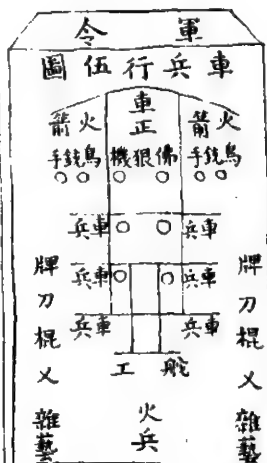 軍令
車兵行伍圖
車正
火箭
火箭
鳥銃手
佛狼機
鳥銃手
車兵
車兵
車兵
車兵
車兵
車兵
舵工
火兵
牌刀棍叉雜藝
牌刀棍叉雜藝